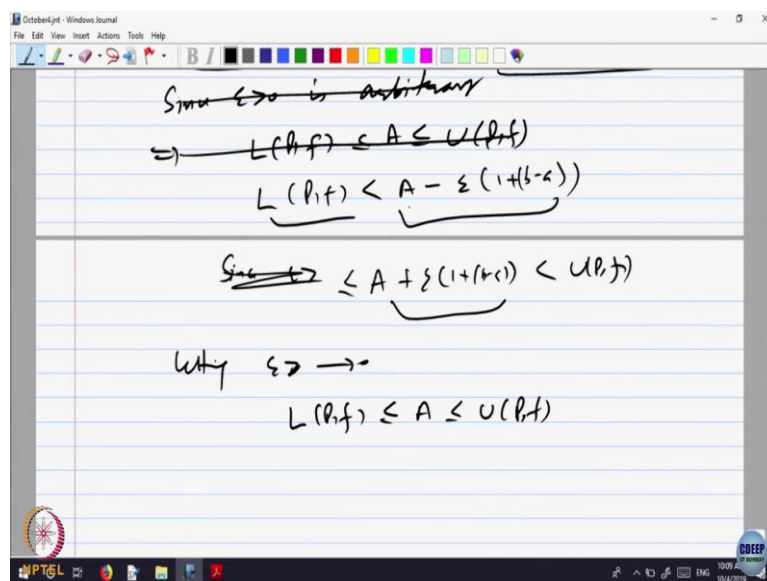 October4.jnt - Windows Journal
File Edit View Insert Actions Tools Help
B I
Since ε>0 is arbitrary
=) L(P,f) ≤ A ≤ U(P,f)
L(P,f) < A - ε(1+(b-a))
≤ A + ε(1+(b-a)) < U(P,f)
Letting ε>
L(P,f) ≤ A ≤ U(P,f)
NPTEL
CDEEP
IIT BOMBAY
ENG
10:09 A
10/4/2019